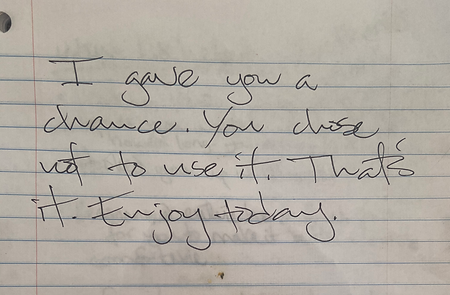 I gave you a
chance. You chose
not to use it. That's
it. Enjoy today.